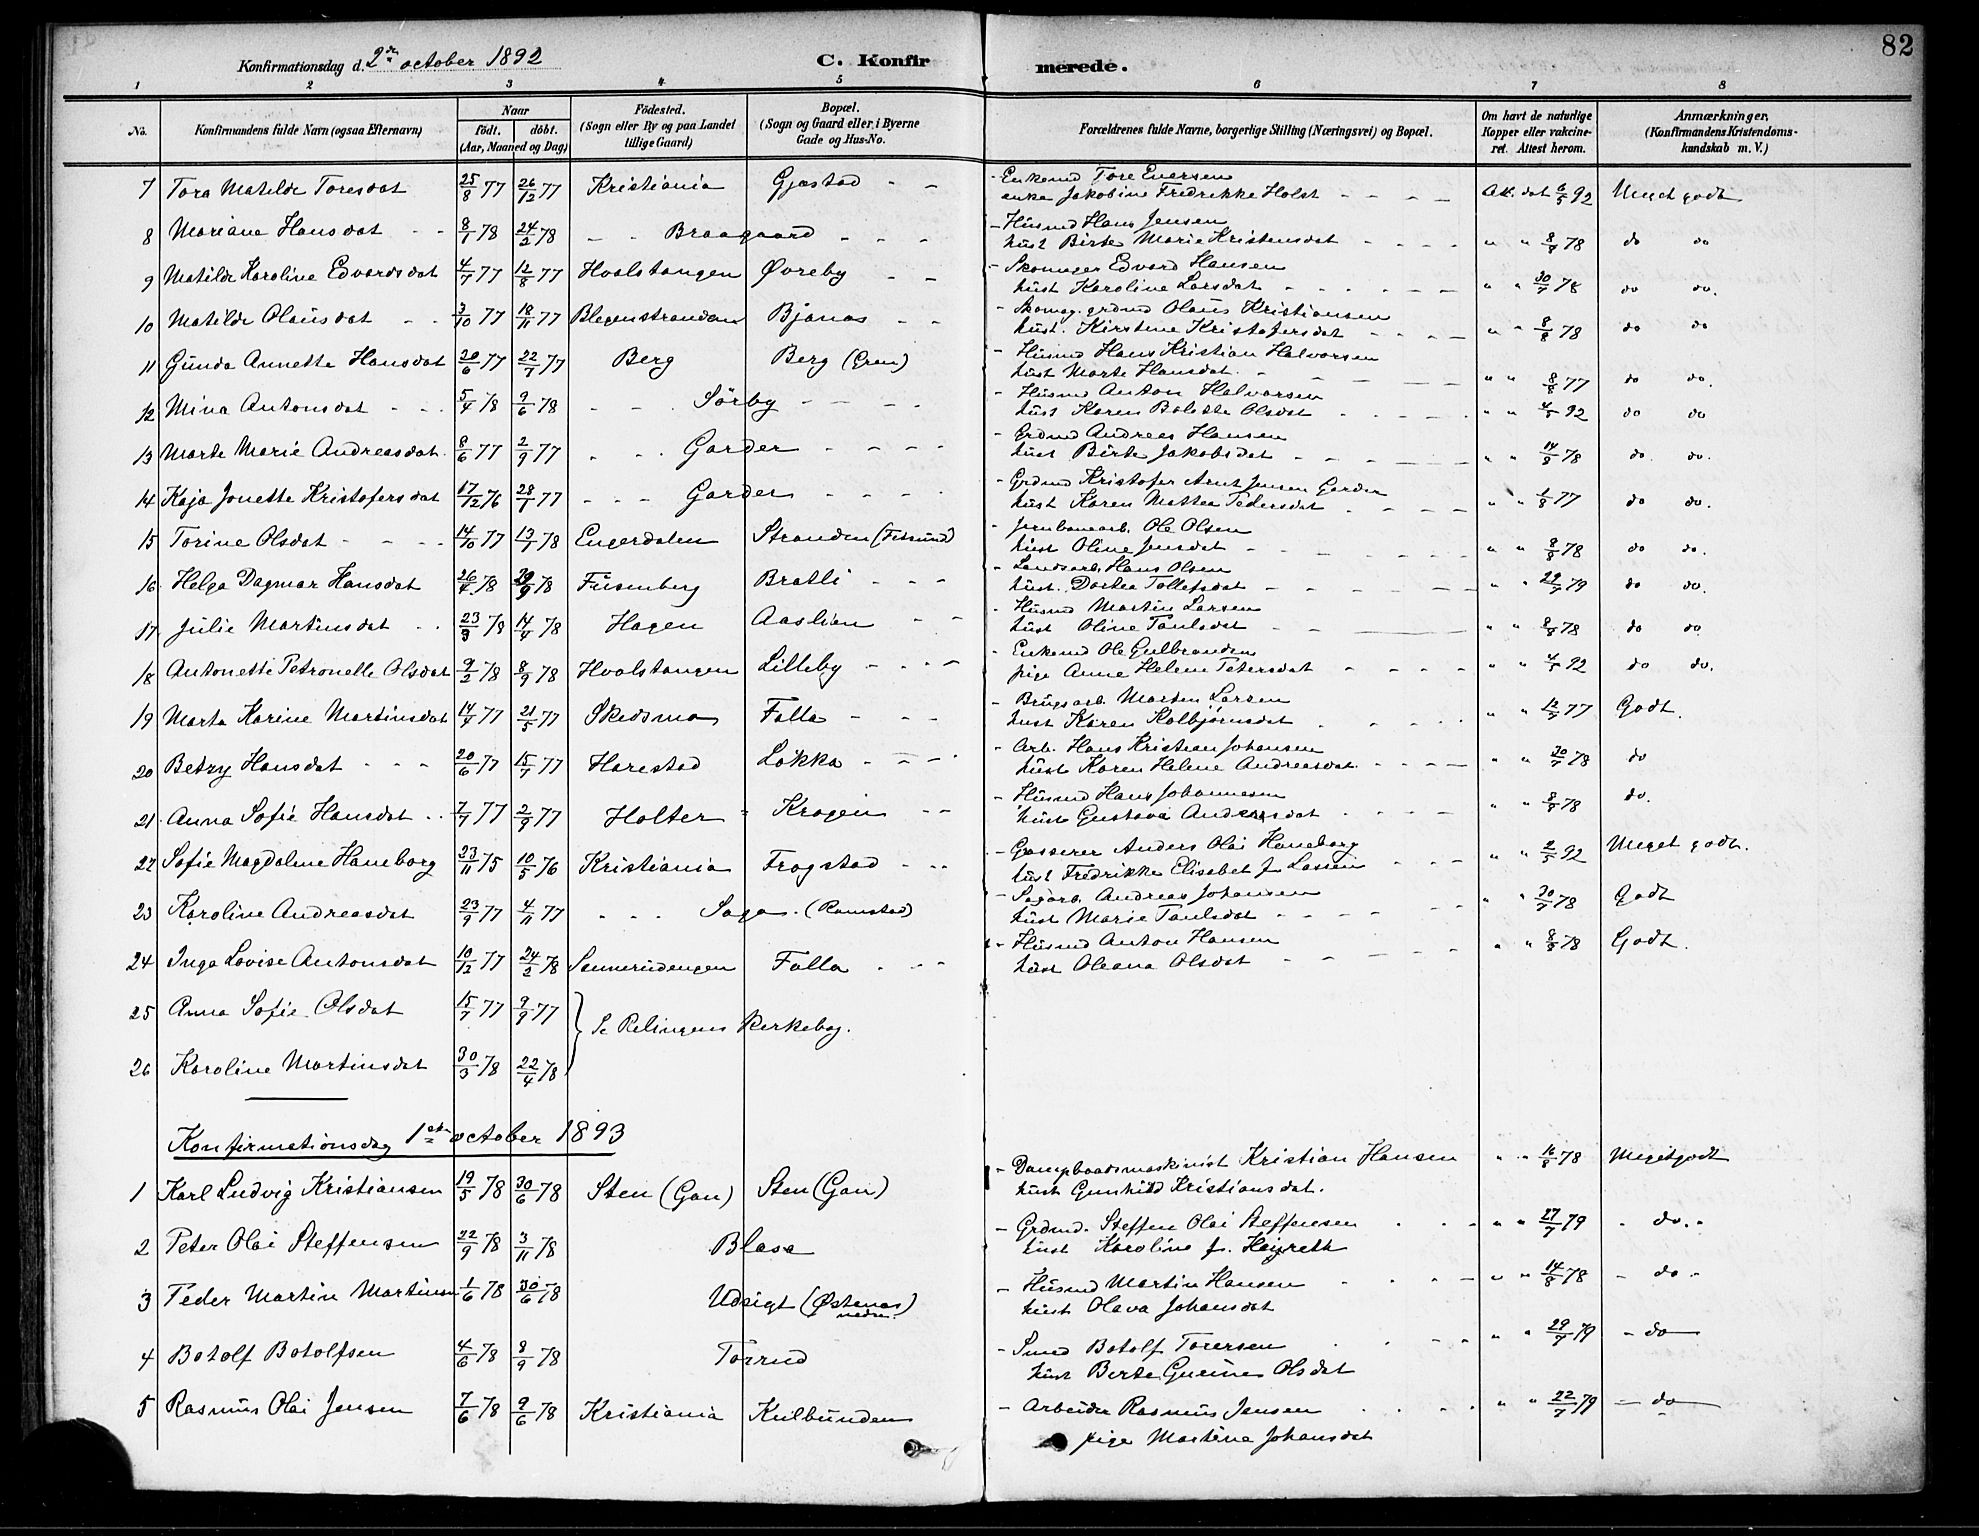 82
Konfirmationsdag d. 2den october 1892 C. Konfirmerede.
1 2 3 4 5 6 7 8
No. Konfirmandens fulde Navn (ogsaa Efternavn) Naar født. døbt. (Aar, Maaned og Dag) Födested. (Sogn eller By og paa Landet tillige Gaard) Bopæl. (Sogn og Gaard eller i Byerne Gade og Hus-No. Forældrenes fulde Navne, borgerlige Stilling (Næringsvei) og Bopæl. Om havt de naturlige Kopper eller vakcineret. Attest herom. Anmærkninger, (Konfirmandens Kristendomskundskab m. V.)
7 Tora Matilde Toresdat 25/8 77 26/12 77 Kristiania Gjæstad - - - Enkemd Tore Evensen
enke Jakobine Fredrikke Holst - - - - Att. dat 6/5 92 Meget godt
8 Mariane Hansdat - - 8/1 78 24/2 78 - - Braagaard - - - - Husmd Hans Jensen
hust Birte Marie Kristensdat - - - - " " 8/8 78 do do
9 Matilde Karoline Edvardsdat 4/7 77 12/8 77 Hvalstangen Øvreby - - - Skomager Edvard Hansen
hust Karoline Larsdat - - - - - - " " 30/7 78 do do.
10 Matilde Olausdat - - 3/10 77 18/11 77 Blegenstranden Bjanas - - - Skomag. grdmd Olaus Kristiansen
hust. Kirstine Kristofersdat - - - - " " 8/8 78 do do
11 Gunda Annette Hansdat 20/6 77 22/7 77 Berg Berg (Gren) - Husmd Hans Kristian Halvorsen
hust Marte Hansdat. - - - - - " " 8/8 77 do do.
12 Mina Antonsdat - - - 5/4 78 9/6 78 - - - Sörby - - - - - Husmd Anton Halvorsen
hust Karen Bolette Olsdat - - - - " " 4/5 92 do do
13 Marte Marie Andreasdat. 8/6 77 2/9 77 - - - Garder - - - - - Grdmd Andreas Hansen
hust Birte Jakobsdat - - - - - " " 14/8 78 do do.
14 Kaja Jonette Kristofersdat 17/12 76 28/1 77 - - - Garder - - - - - Grdmd Kristofer Arnt Jensen Garder
hust Karen Mathea Pedersdat - - - - " " 1/8 77 do do.
15 Torine Olsdat - - - 14/10 77 13/1 78 Engerdalen Stranden (Fetsund) - Jernbanearb. Ole Olsen
hust Oline Jensdat - - - - - " " 8/8 78 do do.
16 Helga Dagmar Hansdat 26/4 78 29/9 78 Fusenberg Bratli - - - - Landarb. Hans Olsen
hust. Dortea Tollefsdat - - - - - - " " 29/7 79 do do.
17 Julie Martinsdat - - 23/3 78 14/4 78 Hagen Aaslien - - - Husmd Martin Larsen
hust Oline Paulsdat - - - - - " " 8/8 78 do do
18 Antonette Petronelle Olsdat 9/2 78 8/9 78 Hvalstangen Lilleby - - - - - Enkemd Ole Gulbranden
pige Anne Helene Petersdat - - - - " " 4/5 92 do do.
19 Marta Karine Martinsdat 14/4 77 21/5 77 Skedsmo Falla - - - - Brugsarb. Morten Larsen
hust Karen Kolbjørnsdat - - - - " " 12/7 77 Godt.
20 Betzy Hansdat - - - 20/6 77 15/7 77 Harestad Løkka - - - - - Arb. Hans Kristian Johansen
hust Karen Helene Andreasdat. - - - - " " 30/7 78 do
21 Anna Sofie Hansdat - - 7/7 77 2/9 77 Holter - Krogen - - - Husmd Hans Johannesen
hust Gustava Andersdat - - - - " " 8/8 78 do.
22 Sofie Magdalene Haneborg 23/11 75 10/5 76 Kristiania Frogstad - - - Grosserer Anders Olai Haneborg
hust Fredrikke Elisabet f. Lassen - - - " " 2/5 92 Meget godt.
23 Karoline Andreasdat 23/9 77 4/11 77 - - - Saga. (Ramstad) - Sagarb. Andreas Johansen
hust Marie Paulsdat - - - - - - " " 30/7 78 Godt
24 Inga Lovise Antonsdat 10/12 77 24/2 78 Sannerudengen Falla - - - - Husmd Anton Hansen
hust Oleana Olsdat - - - - - " " 8/8 78 Godt.
25 Anna Sofie Olsdat 15/7 77 9/9 77
} Se Relingens Kirkebog.
26 Karoline Martinsdat 30/3 78 22/4 78
Konfirmationsdag 1ste october 1893
1 Karl Ludvig Kristiansen 19/5 78 30/6 78 Sten (Gan) Sten (Gan) - Dampbaadsmaskinist Kristian Hansen " " 16/8 78 Meget godt
hust Gunhild Kristiansdat.
2 Peter Olai Steffensen 22/9 78 3/11 78 Blasa - Grdmd. Steffen Olai Steffensen - - - " " 27/7 79 - do. -
hust Karoline f. Heyreth
3 Peder Martin Martinsen 1/6 78 30/6 78 Udsigt (Østenas) nedre - Husmd Martin Hansen - - - - " " 14/8 78 - do -
hust Olava Johansdat
4 Botolf Botolfsen 4/6 78 8/9 78 Torrud - Smed Botolf Torersen - - - " " 29/7 79 - do -
hust Berte Gurine Olsdat
5 Rasmus Olai Jensen 7/6 78 9/6 78 Kristiania Kulbunden - Arbeider Rasmus Jensen - - - - " " 22/7 79 - do -
pige Martine Johansdat